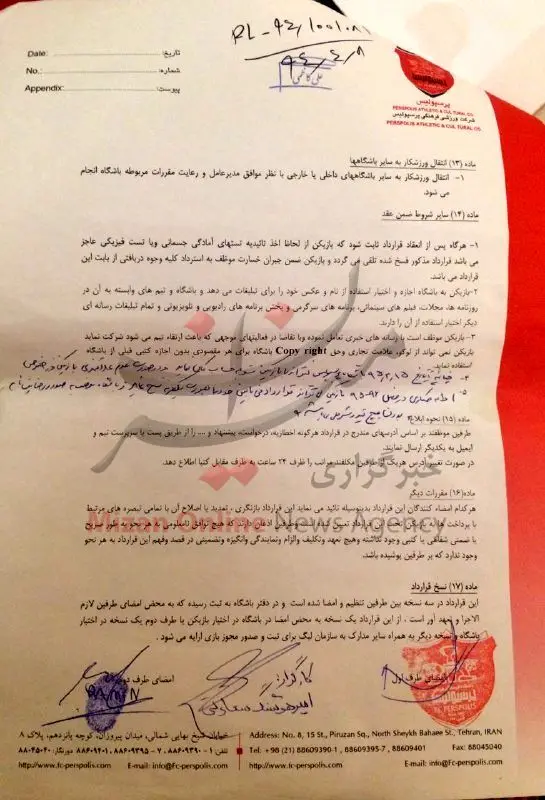 RL-94/1001081
94/4/8
Date: تاریخ:
No.: شماره:
Appendix: پیوست:
پرسپولیس
PERSPOLIS ATHLETIC & CULTURAL CO.
شرکت ورزشی فرهنگی پرسپولیس
PERSPOLIS ATHLETIC & CULTURAL CO.
ماده (۱۳) انتقال ورزشکار به سایر باشگاهها
۱- انتقال ورزشکار به سایر باشگاههای داخلی یا خارجی با نظر موافق مدیرعامل و رعایت مقررات مربوطه باشگاه انجام
می شود.
ماده (۱۴) سایر شروط ضمن عقد
۱- هرگاه پس از انعقاد قرارداد ثابت شود که بازیکن از لحاظ اخذ تائیدیه تستهای آمادگی جسمانی ویا تست فیزیکی عاجز
می باشد قرارداد مذکور فسخ شده تلقی می گردد و بازیکن ضمن جبران خسارت موظف به استرداد کلیه وجوه دریافتی از بابت این
قرارداد می باشد.
۲-بازیکن به باشگاه اجازه و اختیار استفاده از نام و عکس خود را برای تبلیغات می دهد و باشگاه و تیم های وابسته به آن در
روزنامه ها، مجلات، فیلم های سینمائی، برنامه های سرگرمی و پخش برنامه های رادیویی و تلویزیونی و تمام تبلیغات رسانه ای
دیگر اختیار استفاده از آن را دارند.
۳-بازیکن موظف است با رسانه های خبری تعامل نموده وبا تقاضا در فعالیتهای موجهی که باعث ارتقاء تیم می شود شرکت نماید
بازیکن نمی تواند از لوگو، علامت تجاری وحق Copy right باشگاه برای هر مقصودی بدون اجازه کتبی قبلی از باشگاه
استفاده نماید.
ماده (۱۵) نحوه ابلاغ
طرفین موظفند بر اساس آدرسهای مندرج در قرارداد هرگونه اخطاریه، درخواست، پیشنهاد و .... را از طریق پست یا سرپرست تیم و
ایمیل به یکدیگر ارسال نمایند.
در صورت تغییر آدرس هریک از طرفین مکلفند مراتب را ظرف ۲۴ ساعت به طرف مقابل کتبا اطلاع دهد.
خبرگزاری
Mizan Online News Agency
ماده(۱۶) مقررات دیگر
هر کدام امضاء کنندگان این قرارداد بدینوسیله تائید می نماید این قرارداد بازنگری ، تمدید یا اصلاح آن با تمامی تبصره های مرتبط
یا ضمنی شفاهی یا کتبی وجود نداشته وهیچ تعهد وتکلیف والزام ونمایندگی وانگیزه وتضمینی در قصد وفهم این قرارداد به هر نحو
وجود ندارد که بر طرفین پوشیده باشد.
ماده (۱۷) نسخ قرارداد
این قرارداد در سه نسخه بین طرفین تنظیم و امضا شده است و در دفتر باشگاه به ثبت رسیده که به محض امضای طرفین لازم
الاجرا و تعهد آور است . از این قرارداد یک نسخه به محض امضا در باشگاه در اختیار بازیکن یا طرف دوم یک نسخه در اختیار
باشگاه و نسخه دیگر به همراه سایر مدارک به سازمان لیگ برای ثبت و صدور مجوز بازی ارایه می شود .
امضای طرف اول
کارگزار:
امضای طرف دوم
FC PERSPOLIS
Address: No. 8, 15 St., Piruzan Sq., North Sheykh Bahaee St., Tehran, IRAN
خیابان شیخ بهایی شمالی، میدان پیروزان، کوچه پانزدهم، پلاک ۸
Tel: +98 (21) 88609390-1 , 88609395-7 , 88609401 Fax: 88045040
تلفن : ۱-۸۸۶۰۹۳۹۰ ، ۷-۸۸۶۰۹۳۹۵ ، ۸۸۶۰۹۴۰۱ دورنگار: ۸۸۰۴۵۰۴۰
http://www.fc-perspolis.com E-mail: info@Fc-perspolis.com
http://www.fc-perspolis.com E-mail: info@Fc-perspolis.com